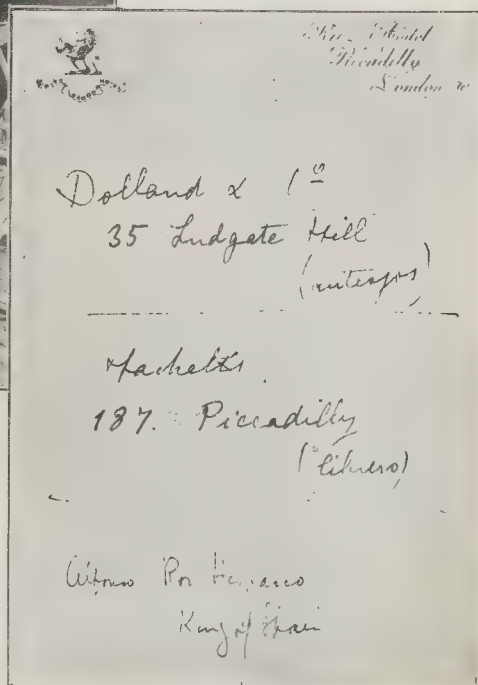 Hotel
Piccadilly
London W
Dolland & Cº
35 Ludgate Hill
(anteojos)
187. Piccadilly
(librero)
Alfonso
King of Spain